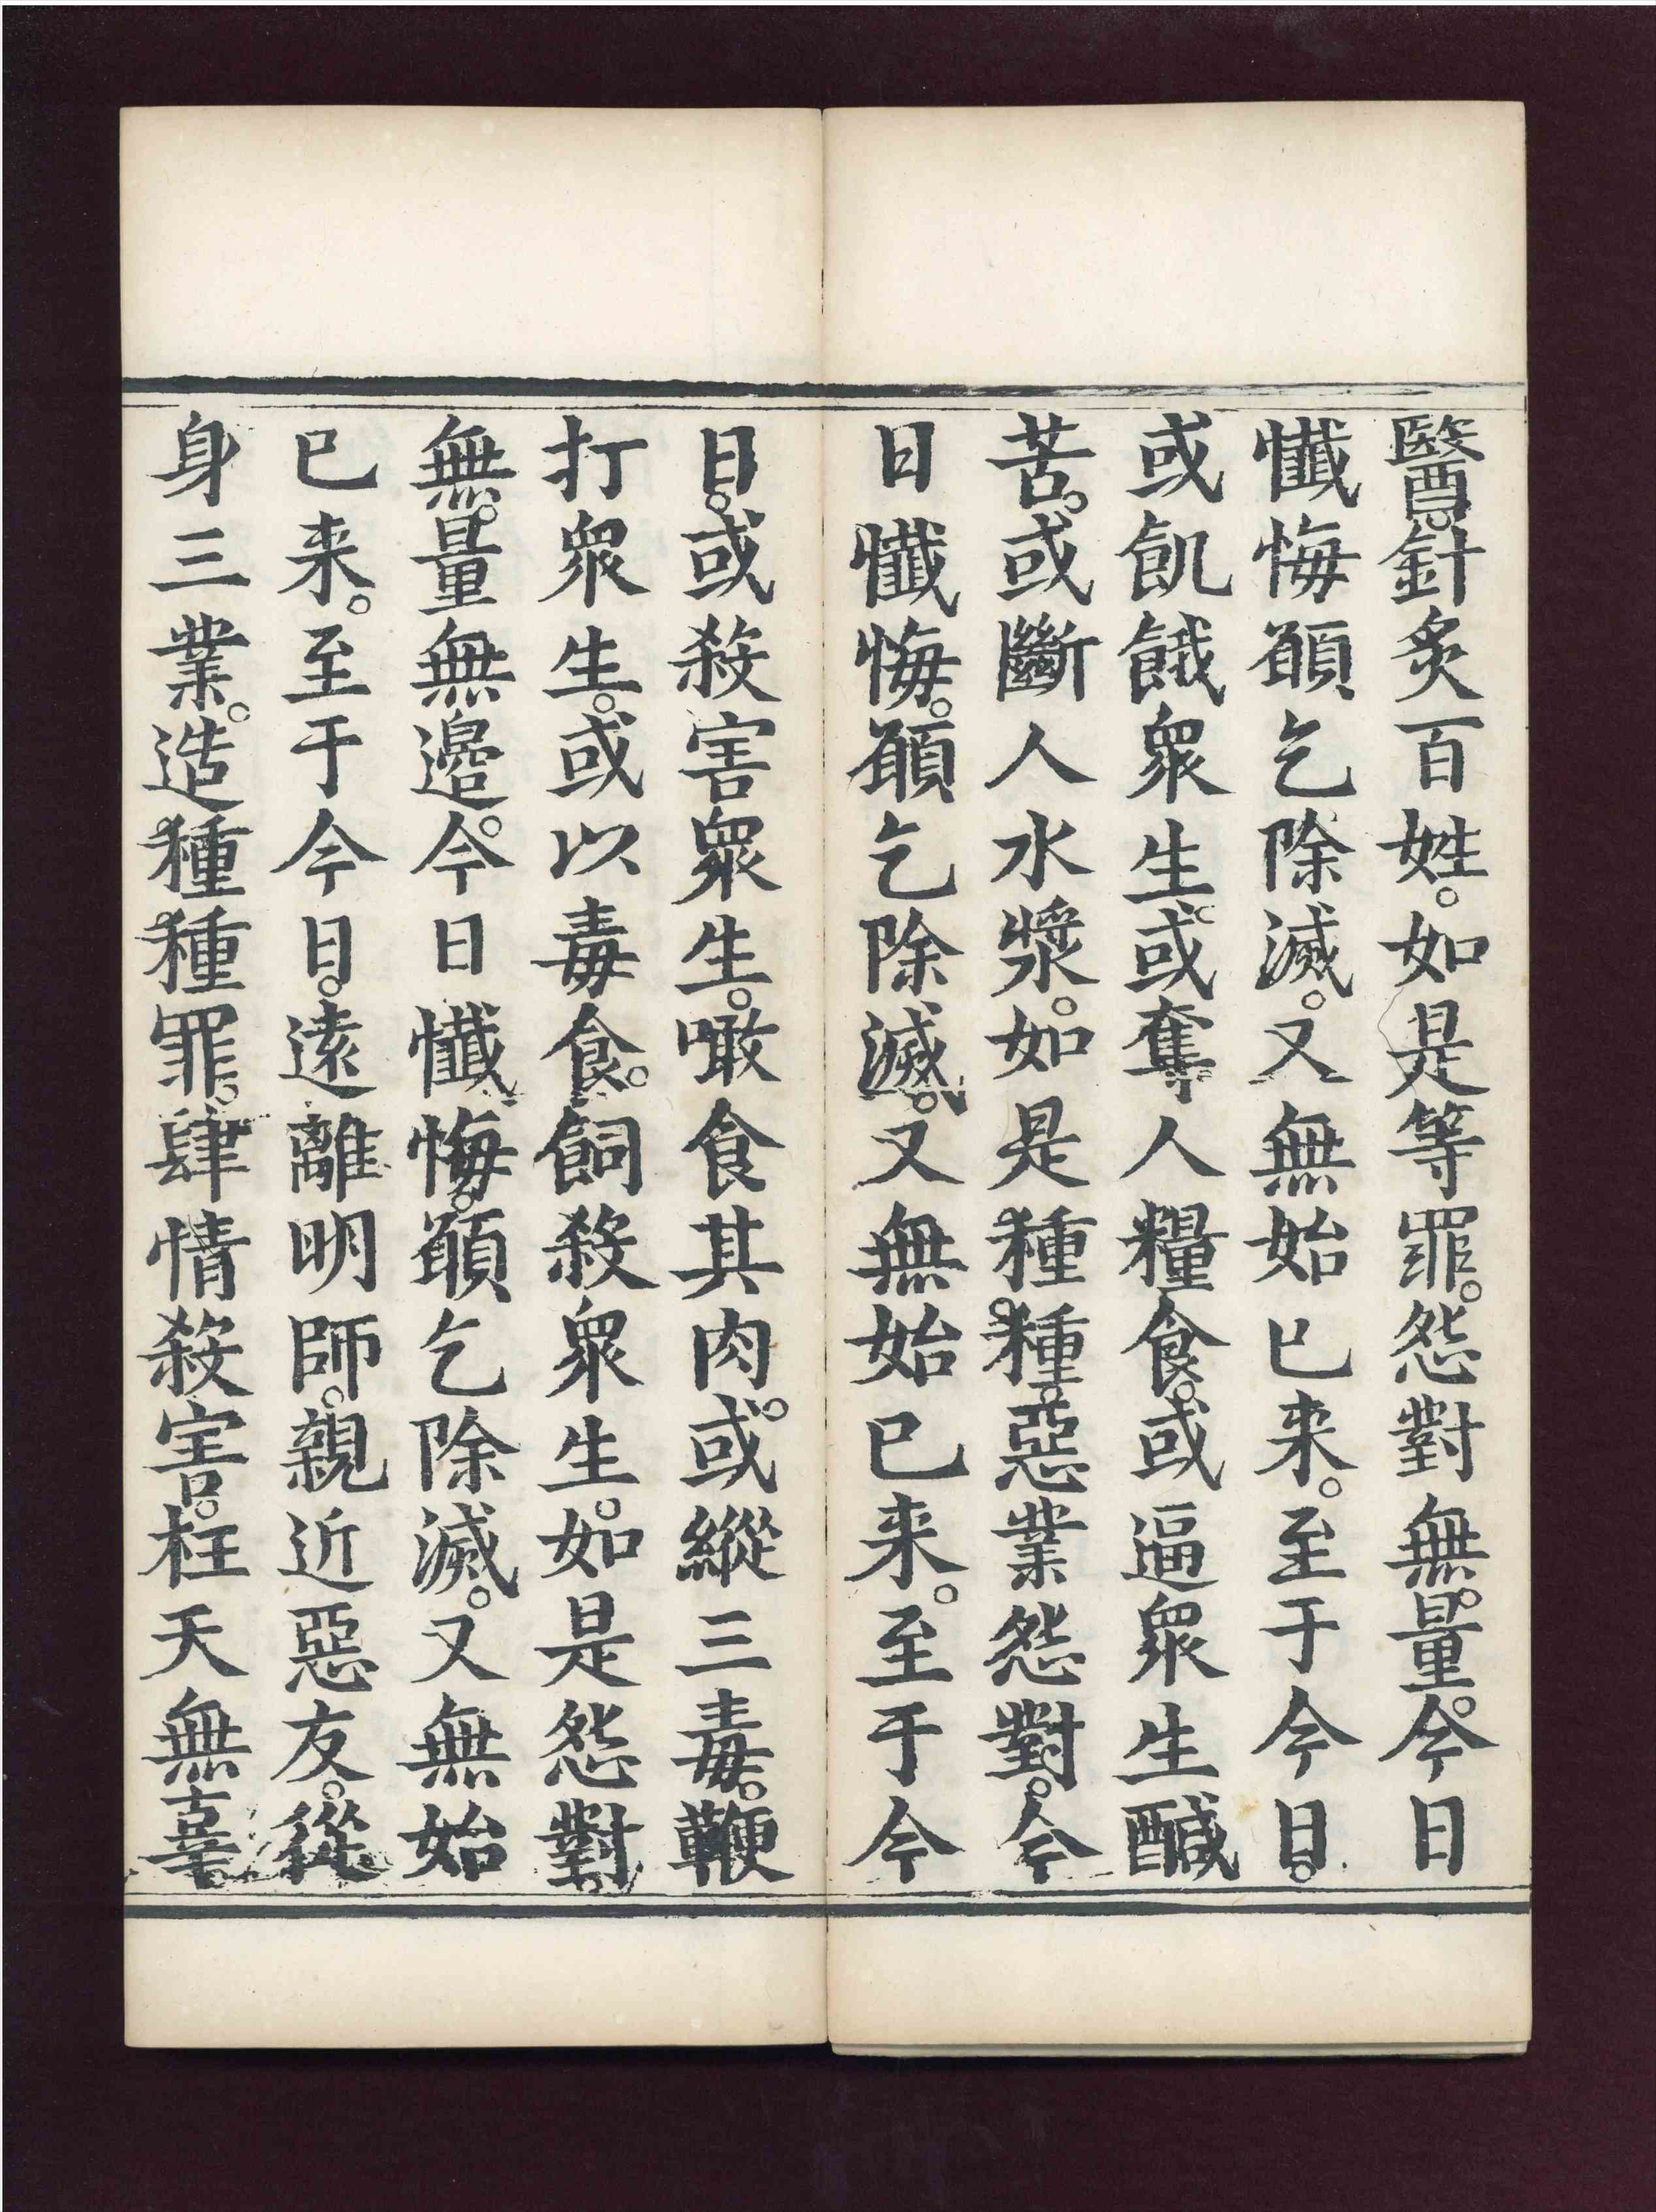 醫。針炙百姓。如是等罪。怨對無。量。今日
懺悔願乞除滅。又無始已来。至于今日。
或飢餓眾生。或奪人糧食。或逼眾生醎
苦。或斷人水漿。如是種種。惡業怨對。今
日懺悔。願乞除滅。又無始已来。至于今
日。或殺害眾生。噉食其肉。或縱三毒。鞭
打眾生。或以毒食。飼殺眾生。如是怨對。
無。量無邊。今日懺悔。願乞除滅。又無始
已来。至于今日。遠離明師。親近惡友。從
身三業。造種種罪。肆情殺害。枉夭無辜。